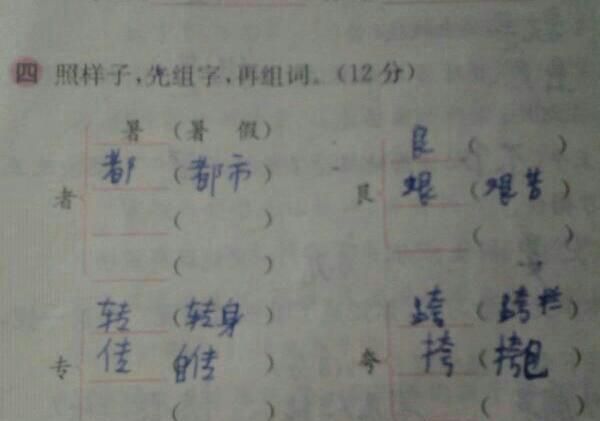 四 照样子,先组字,再组词。(12分)
暑 (暑 假) 良 ( )
都 (都市) 艰 (艰苦)
者 艮
( ) ( )
( )
转 (转身) 跨 (跨栏)
传 自传 ) 挎 (挎包)
专 夸
( ) ( )